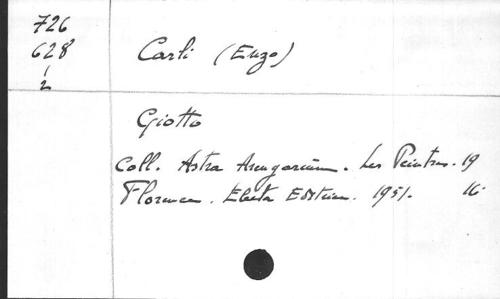 726
628
1
2
Carli (Enzo)
Giotto
Coll. Astra Arengarium. Les Peintres. 19
Florence. Electa Editrice. 1951. 16